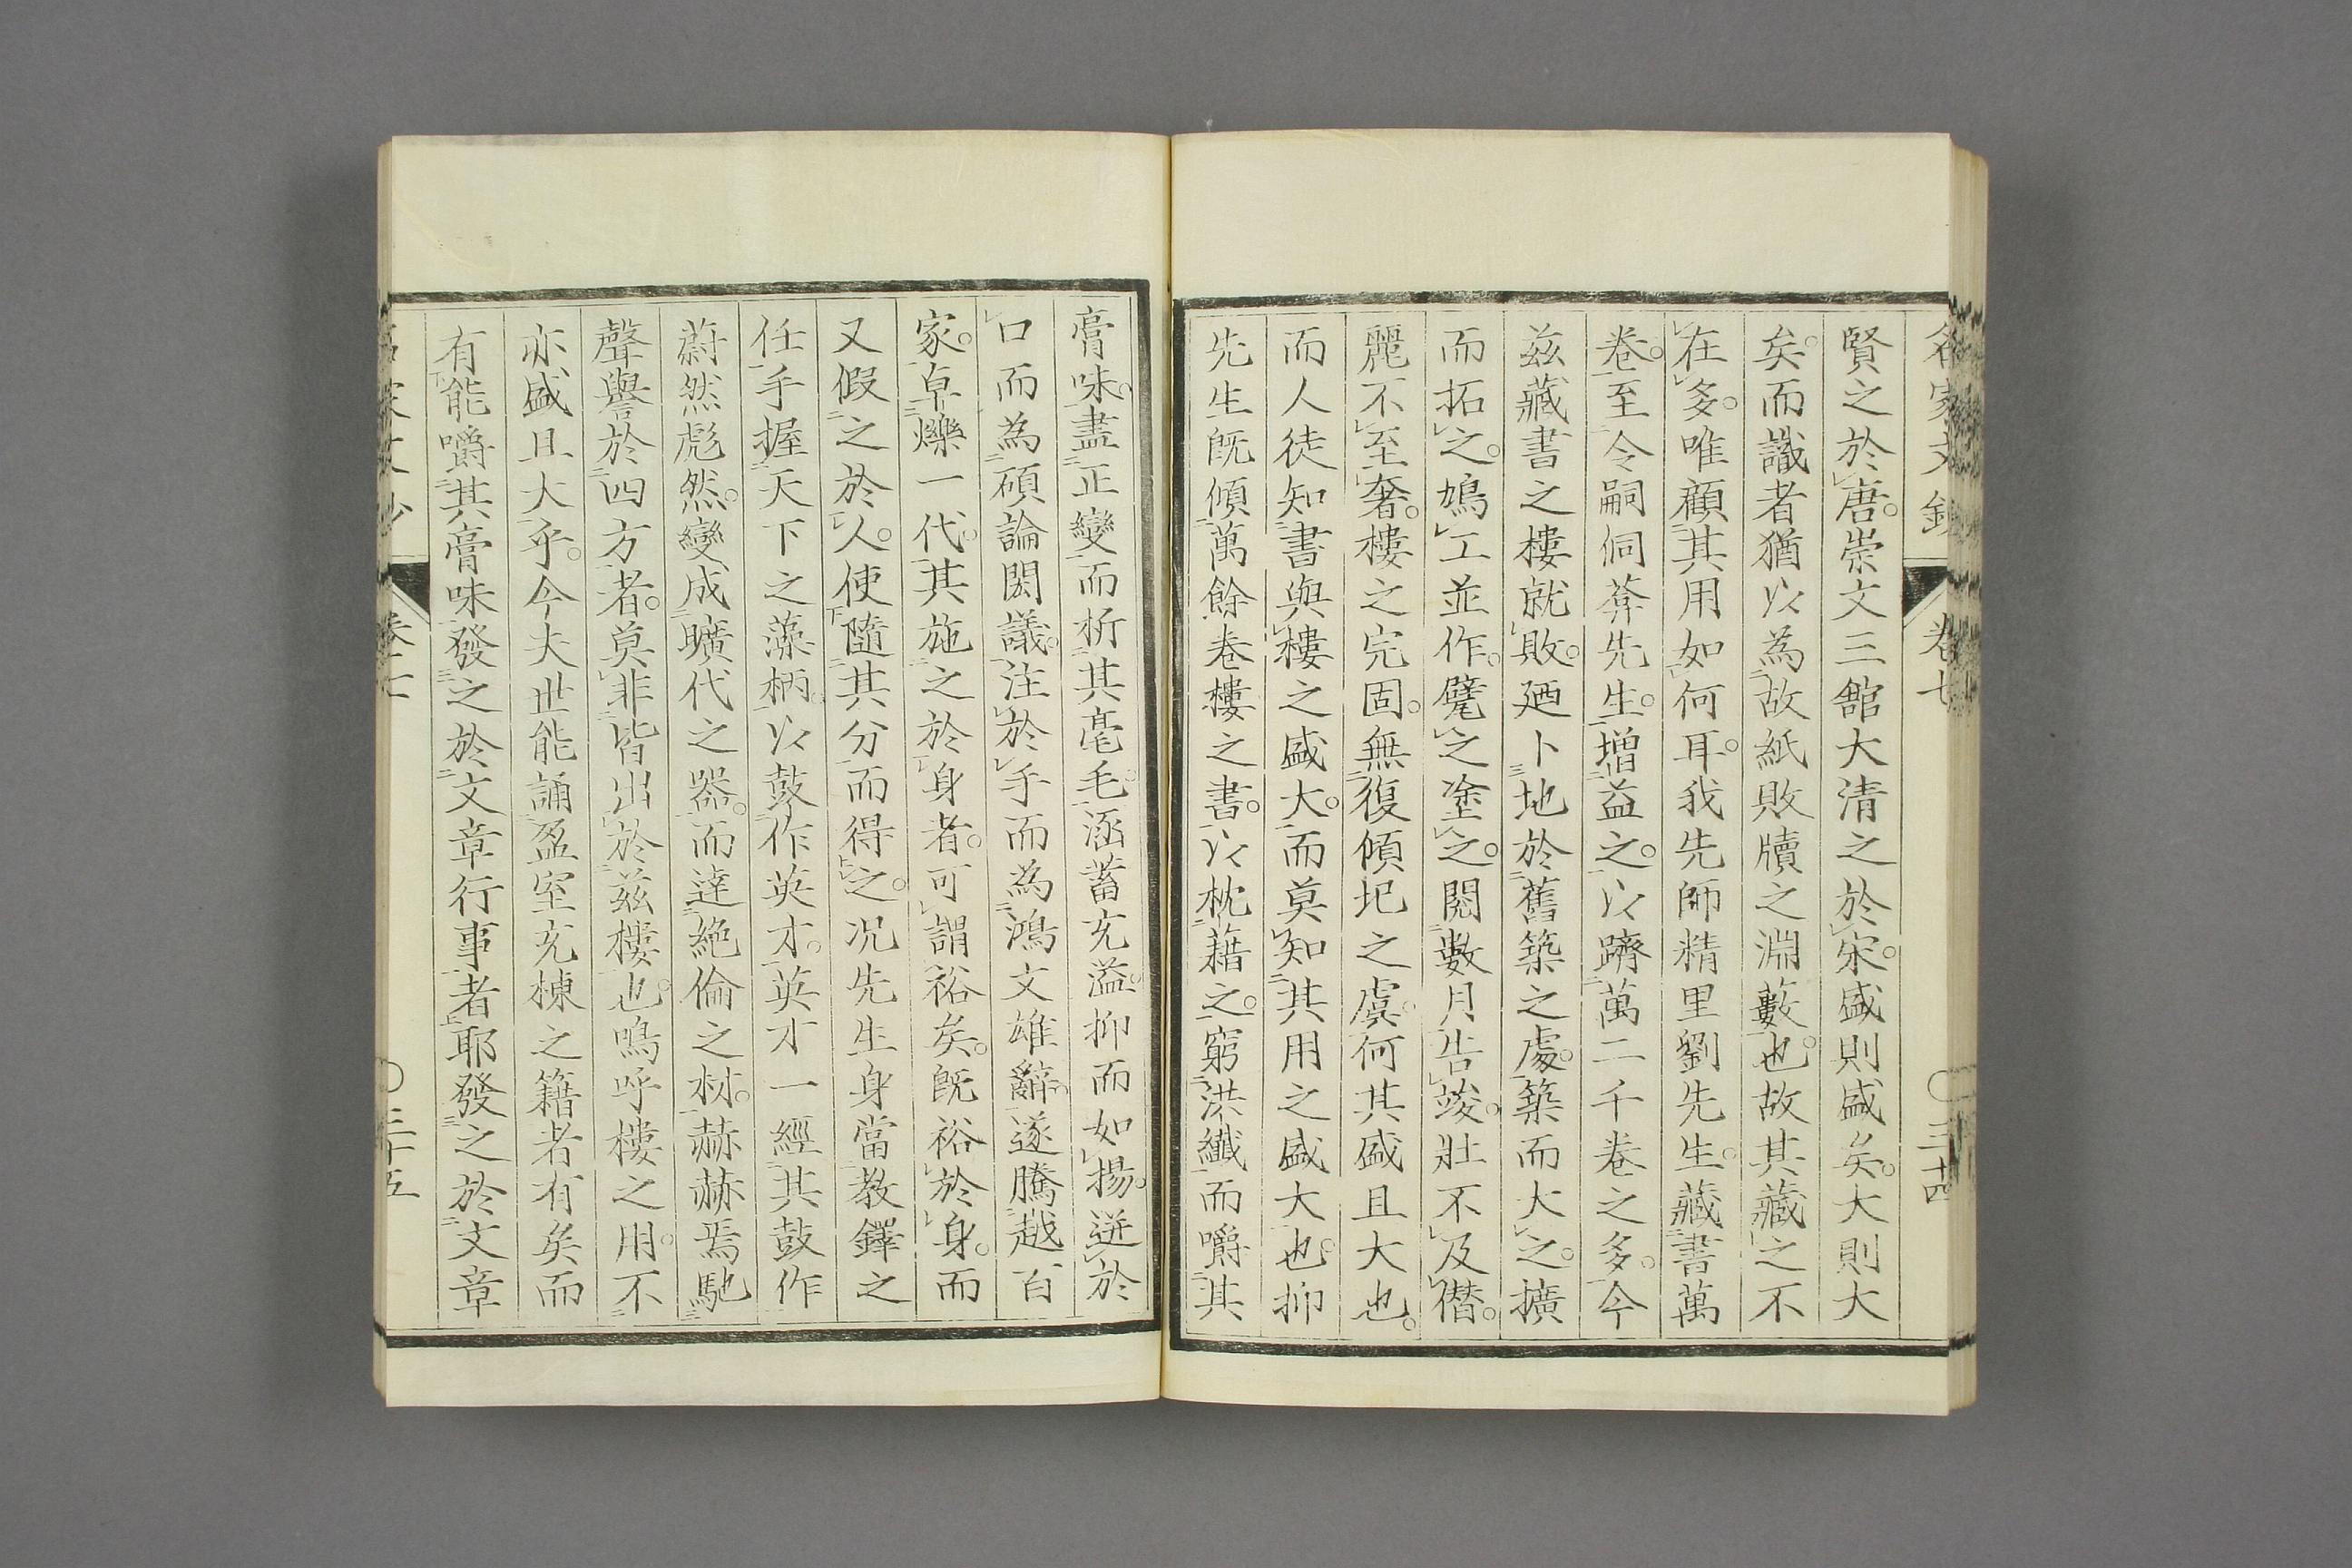 名家文鈔　卷七　〇三十四
賢之於唐。崇文三舘大清之於宋。盛則盛矣。大則大
矣。而識者猶以為故紙敗牘之淵藪也。故其藏之不
在多。唯顧其用如何耳。我先師精里劉先生。藏書萬
卷。至令嗣侗葊先生。增益之。以躋萬二千卷之多。今
茲藏書之樓就敗。廼卜地於舊築之處。築而大之。擴
而拓之。鳩工並作。甓之塗之。閱數月告竣。壯不及僭。
麗不至奢。樓之完固。無復傾圮之虞。何其盛且大也。
而人徒知書與樓之盛大。而莫知其用之盛大也。抑
先生既傾萬餘卷樓之書。以枕藉之。窮洪纖而嚼其
膏味。盡正變而析其毫毛。涵蓄充溢。抑而如揚。迸於
口而為碩論閎議。注於手而為鴻文雄辭。遂騰越百
家。卓爍一代。其施之於身者。可謂裕矣。既裕於身。而
又假之於人。使隨其分而得之。况先生身當教鐸之
任。手握天下之藻柄。以鼓作英才。英才一經其鼓作
蔚然彪然。變成曠代之器。而達絶倫之材。赫赫焉馳
聲譽於四方者。莫非皆出於茲樓也。嗚呼樓之用。不
亦盛且大乎。今夫世能誦盈室充棟之籍者有矣。而
有能嚼其膏味發之於文章行事者耶。發之於文章
名家文鈔　卷七　〇三十五